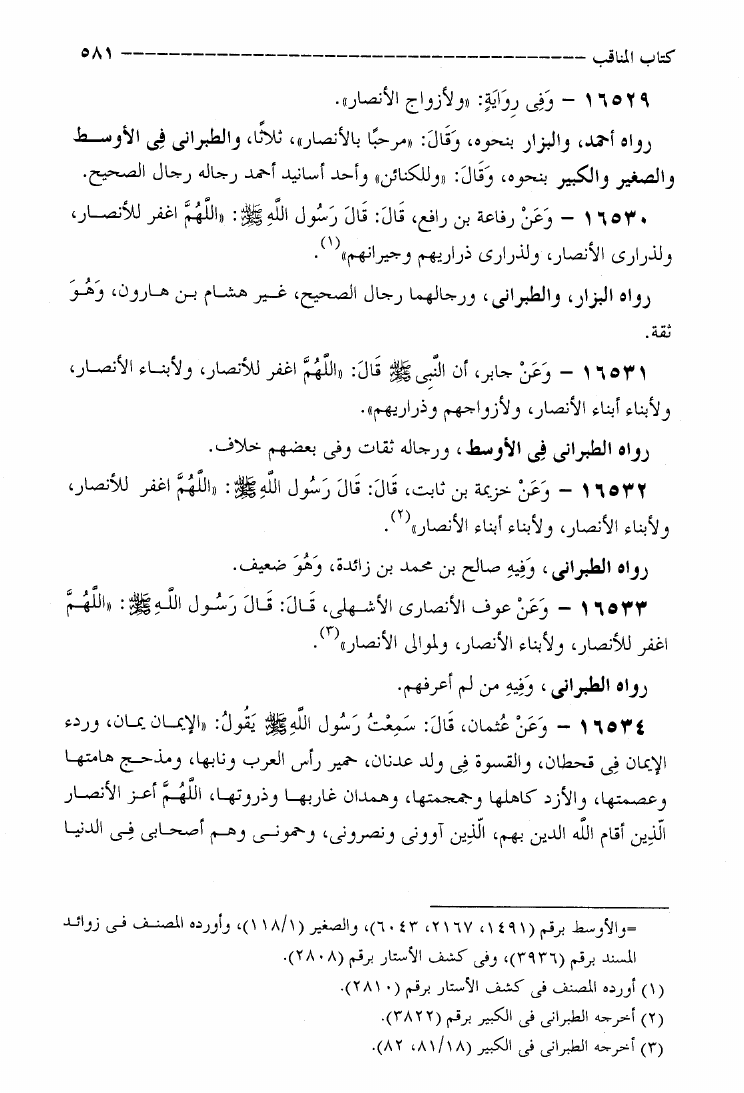 كتاب المناقب ------------------------------------------ ٥٨١
١٦٥٢٩ – وَفِى رِوَايَةٍ: «ولأزواج الأنصار».
رواه أحمد، والبزار بنحوه، وَقَالَ: «مرحبًا بالأنصار»، ثلاثًا، والطبرانى فِى الأوسط
والصغير والكبير بنحوه، وَقَالَ: «وللكنائن» وأحد أسانيد أحمد رجاله رجال الصحيح.
١٦٥٣٠ – وَعَنْ رفاعة بن رافع، قَالَ: قَالَ رَسُول اللَّهِ ﷺ: «اللَّهُمَّ اغفر للأنصار،
ولذرارى الأنصار، ولذرارى ذراريهم وجيرانهم»(١).
رواه البزار، والطبرانى، ورجالهما رجال الصحيح، غير هشام بن هارون، وَهُوَ
ثقة.
١٦٥٣١ – وَعَنْ جابر، أن النَّبِى ﷺ قَالَ: «اللَّهُمَّ اغفر للأنصار، ولأبناء الأنصار،
ولأبناء أبناء الأنصار، ولأزواجهم وذراريهم».
رواه الطبرانى فِى الأوسط، ورجاله ثقات وفى بعضهم خلاف.
١٦٥٣٢ – وَعَنْ خزيمة بن ثابت، قَالَ: قَالَ رَسُول اللَّهِ ﷺ: «اللَّهُمَّ اغفر للأنصار،
ولأبناء الأنصار، ولأبناء أبناء الأنصار»(٢).
رواه الطبرانى، وَفِيهِ صالح بن محمد بن زائدة، وَهُوَ ضعيف.
١٦٥٣٣ – وَعَنْ عوف الأنصارى الأشهلى، قَالَ: قَالَ رَسُول اللَّهِ ﷺ: «اللَّهُمَّ
اغفر للأنصار، ولأبناء الأنصار، ولموالى الأنصار»(٣).
رواه الطبرانى، وَفِيهِ من لم أعرفهم.
١٦٥٣٤ – وَعَنْ عُثمان، قَالَ: سَمِعْتُ رَسُول اللَّهِ ﷺ يَقُولُ: «الإيمان يمان، وردء
الإيمان فِى قحطان، والقسوة فِى ولد عدنان، حمير رأس العرب ونابها، ومذحج هامتها
وعصمتها، والأزد كاهلها وجمجمتها، وهمدان غاربها وذروتها، اللَّهُمَّ أعز الأنصار
الَّذِين أقام اللَّه الدين بهم، الَّذِين آوونى ونصرونى، وحمونى وهم أصحابى فِى الدنيا
=والأوسط برقم (١٤٩١، ٢١٦٧، ٦٠٤٣)، والصغير (١١٨/١)، وأورده المصنف فى زوائد
المسند برقم (٣٩٣٦)، وفى كشف الأستار برقم (٢٨٠٨).
(١) أورده المصنف فى كشف الأستار برقم (٢٨١٠).
(٢) أخرجه الطبرانى فى الكبير برقم (٣٨٢٢).
(٣) أخرجه الطبرانى فى الكبير (٨١/١٨، ٨٢).